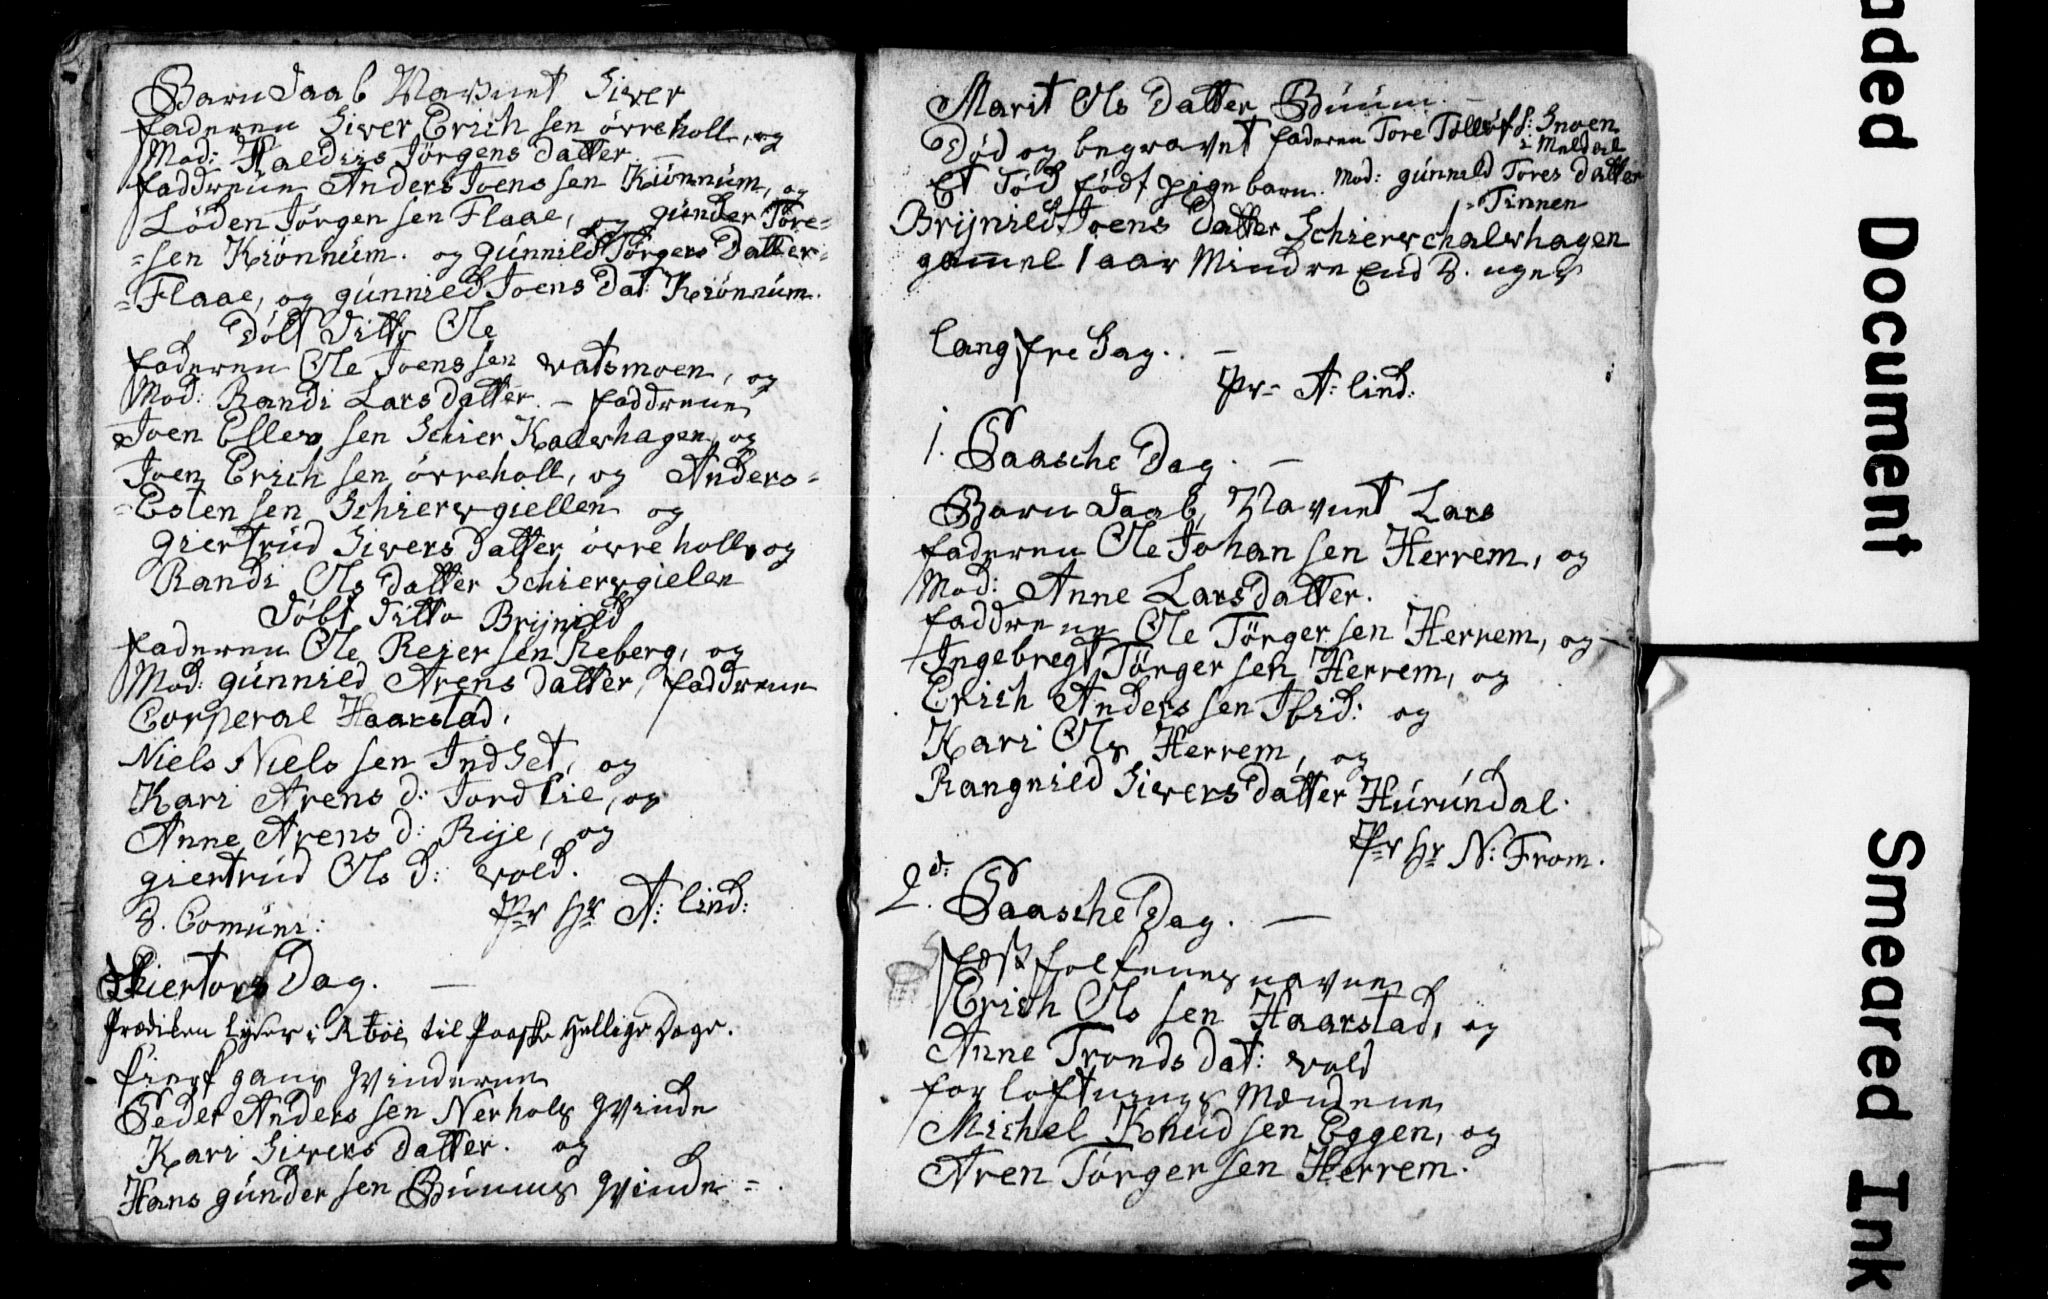 Barn Daab Navnet Siver
faderen Siver Erich sen övreholl, og
Mod: Haldiis Jörgens datter
faddrene Anders Joens sen Kiönnúm, og
Löden Jörgen sen Flaae, og gúnder Töre=
=sen Kiönnúm. og gúnnild Jörgers Datter=
=Flaae, og gúnnild Joens Dat: Kiönnúm.
Döbt Ditto Ole
faderen Ole Joens sen vatsmoen, og
Mod: Randi Lars datter. – faddrene
Joen Ellev sen Schier Kalevhagen, og
Joen Erich sen övreholl, og Anders=
=Esten sen Schiervgiellen og
giertrúd Sivers datter övre holl, og
Randi Ols datter Schiervgielen
Döbt Ditto Brijnild
faderen Ole Reier sen Reberg, og
Mod: gúnnild Arens datter, faddrene
Corperal Haarstad,
Niels Niels sen Indset, og
Kari Arens d: Jordlie, og
Anne Arens d: Rije, og
giertrúd Ols d: vold.
3. Comúni:
Pr Hr A: lind:
Skiertors Dag. –
Prædiken Lyser i Aboe til Paaske Hellige Dage.
kierk gang qvinderne
Peder Anders sen Nerhols qvinde
Kari Sivers datter. og
Hans gúnder sen Búúms qvinde =
Marit Ols Datter Búúm. –
Död og begravet faderen Tore Tollöf s: Snoen
i Meldal
Et död födt pige barn. Mod: gúnnild Tores datter
= Tinnen
Brijnild Joens datter Schiervchalvhagen
gammel 1 aar Mindre End 3. uger
lang fredag. –
Pr= A: lind:
1. Paasche Dag. –
Barn daab, Navnet Lars
faderen Ole Johan sen Herrem, og
Mod: Anne Lars datter.
faddrene Ole Törger sen Herrem, og
Ingebregt Törger sen Herrem, og
Erich Anders sen Ibid: og
Kari Ols Herrem, og
Rangnild Sivers datter Húrúndal.
Pr Hr N: From.
2d. Paasche Dag. –
fæst folkenes navne
Erich Ols sen Haarstad, og
Anne Tronds dat: vold
forloftnings Mændene
Michel Knúd sen Eggen, og
Aren Törger sen Herrem.
aded Document
Smeared Ink